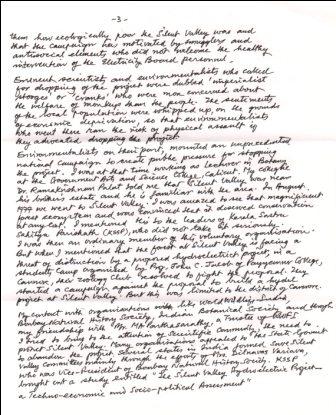 -3-
them how ecologically poor the Silent Valley was and
that the campaign has motivated by smugglers and
antisocial elements who did not welcome the healthy
intervention of the Electricity Board personnel.
Eminent scientists and environmentalists who called
for dropping of the project were dubbed 'imperialist
stooges' or 'cranks' who were more concerned about
the welfare of monkeys than the people. The sentiments
of the local population were whipped up, on the ground
of economic deprivation, so that environmentalists
who went there ran the risk of physical assault if
they advocated dropping the project.
Environmentalists on their part, mounted an unprecedented
national campaign to create public pressure for stopping
the project. I was at that time working as Lecturer in Botany
at the Government Arts and Science College, Calicut. My colleague
Dr Ramakrishnan Palat told me that Silent Valley was near
his brother's estate and he is familiar with the area. In August,
1977 we went to Silent Valley. I was amazed to see that magnificent
forest ecosystem and was convinced that it deserves conservation
at any cost. I mentioned this to the leaders of Kerala Sastra
Sahitya Parishat (KSSP), who did not take it seriously.
I was then an ordinary member of this voluntary organisation.
But when I mentioned that the forest at Silent Valley is facing a
threat of destruction by a proposed hydroelectric project, in a
students camp organised by Prof. John C. Jacob of Payyannur College,
Cannore, their zoology club resolved to fight the proposal. They
started a campaign against the proposal to build a hydel
project at Silent Valley. But this was limited to the district of Cannore.
My contact with organisations with like World Wildlife-India,
Bombay Natural History Society, Indian Botanical Society and through
my friendship with Mr. M.K. a Trustee of WWF I used to
I tried to bring to the attention of Scientific Community, the need to
protect Silent Valley. Many organisations appealed to the State Government
to abandon the project. Several states in India formed Save Silent
Valley Committees through the effort of Mrs. Dilnavas Variava,
who was Vice-President of Bombay Natural History Society. KSSP
brought out a study entitled "The Silent Valley Hydroelectric Project-
a Techno-economic and Socio-political Assessment"